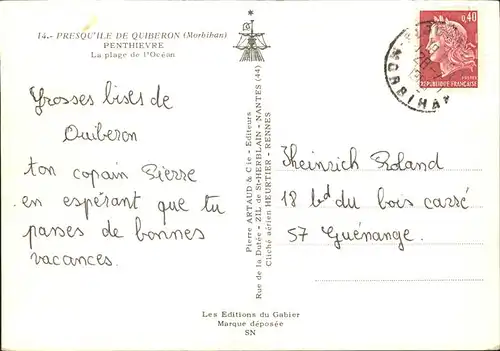 14.- PRESQU'ILE DE QUIBERON (Morbihan)
PENTHIEVRE
La plage de l'Océan
0,40
POSTES
REPUBLIQUE FRANÇAISE
MORBIHAN
Grosses bises de
Quiberon
ton copain Pierre
en espérant que tu
passes de bonnes
vacances.
Pierre ARTAUD & Cie - Editeurs
Rue de la Dutée - ZIL de St-HERBLAIN - NANTES (44)
Cliché aérien HEURTIER - RENNES
Kheinrich Roland
18 bd du bois carré
57 Guénange.
Les Editions du Gabier
Marque déposée
SN